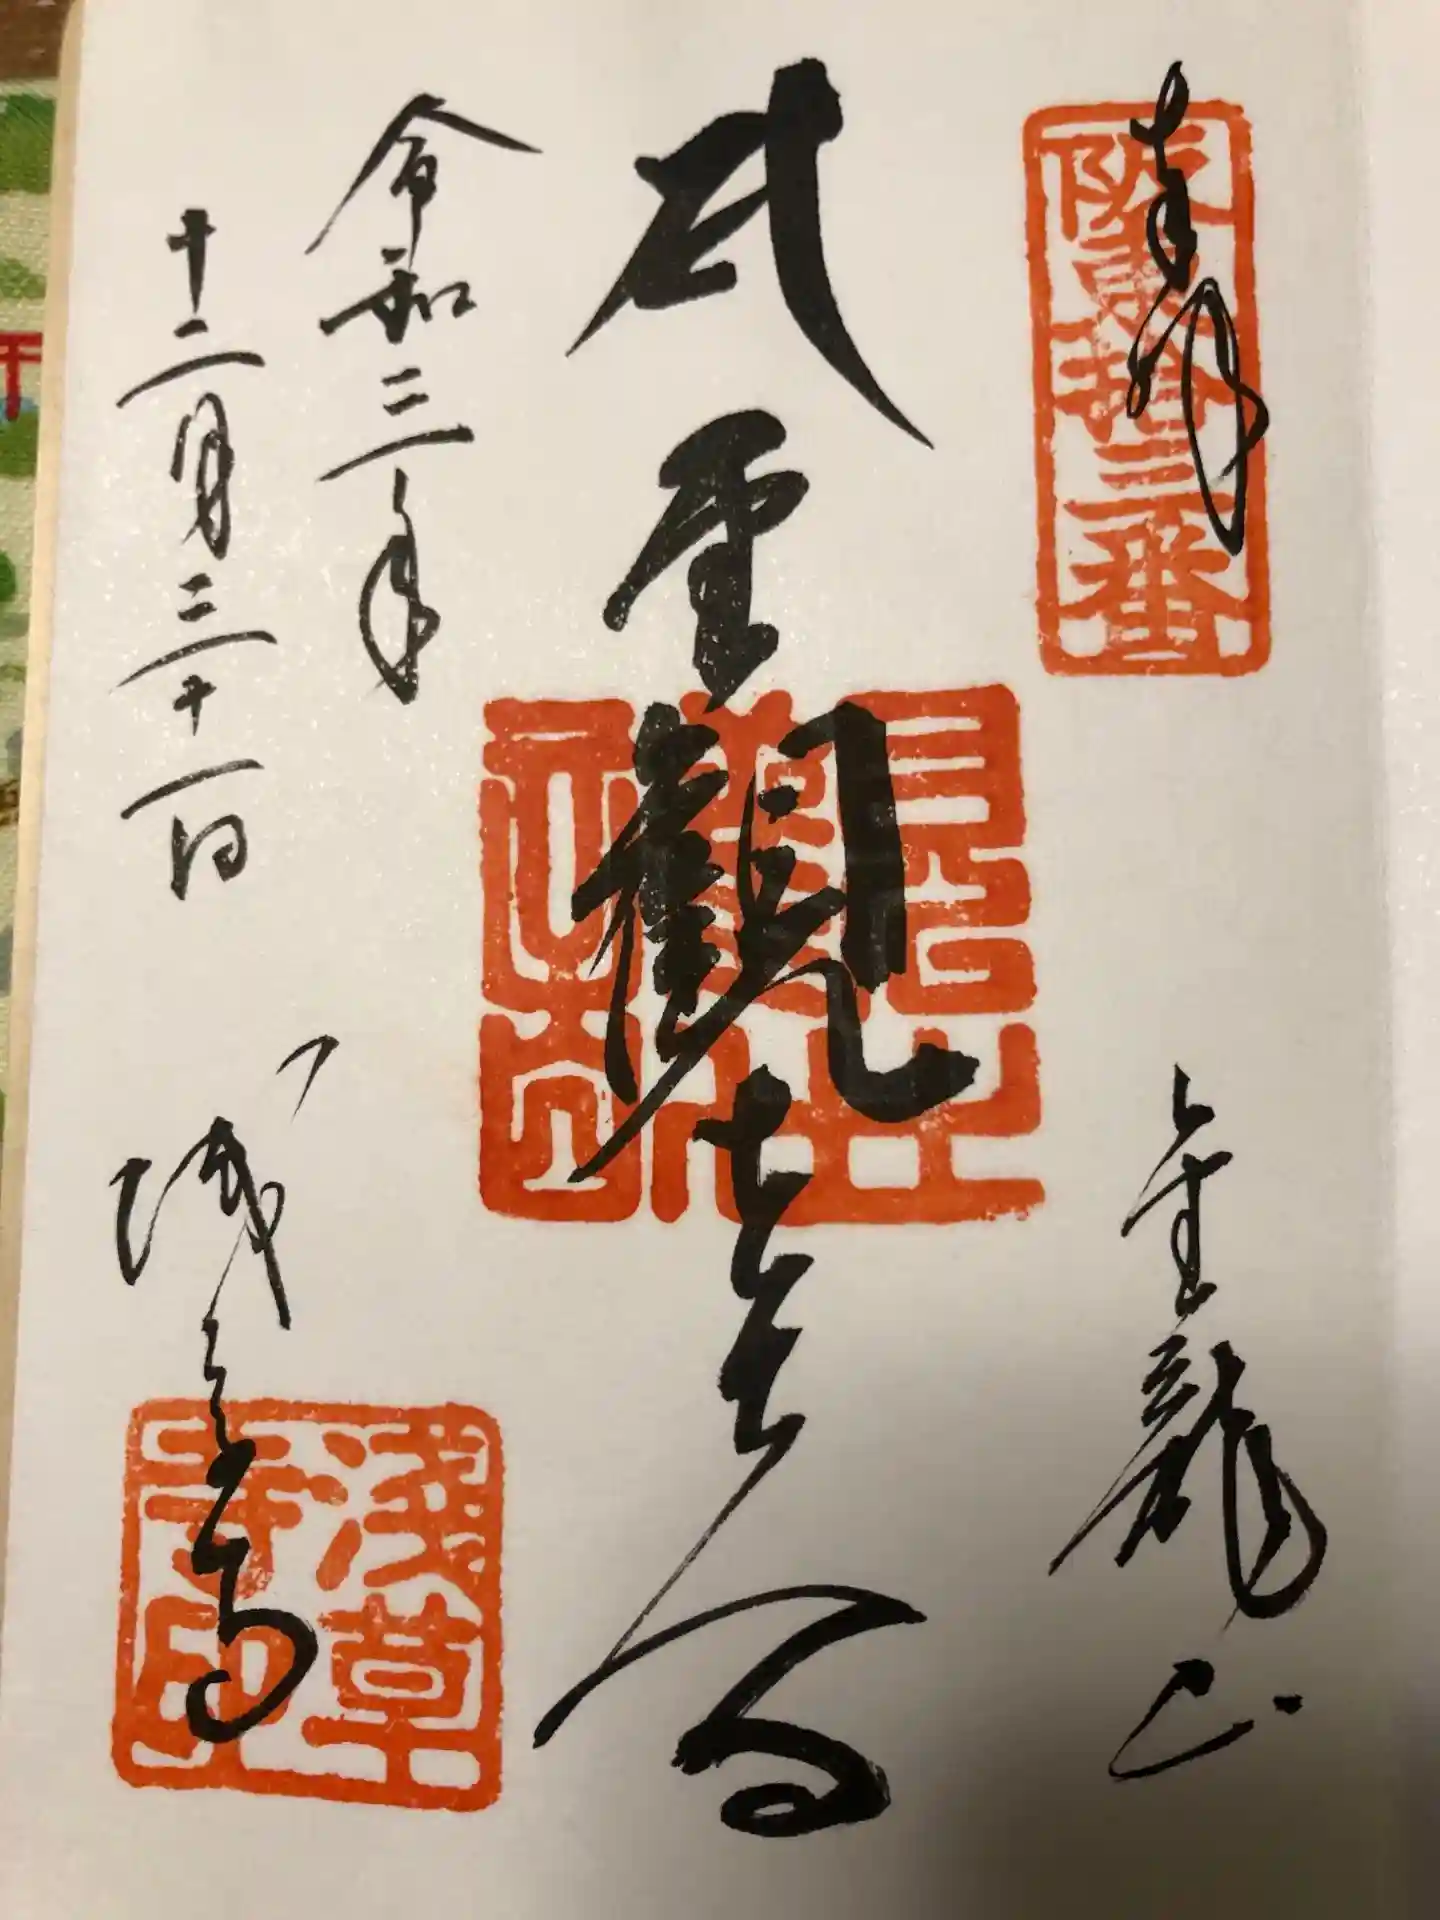 奉拝
坂東拾三番
金龍山
聖観世音
令和三年
十二月三十一日
浅草寺
浅草寺印